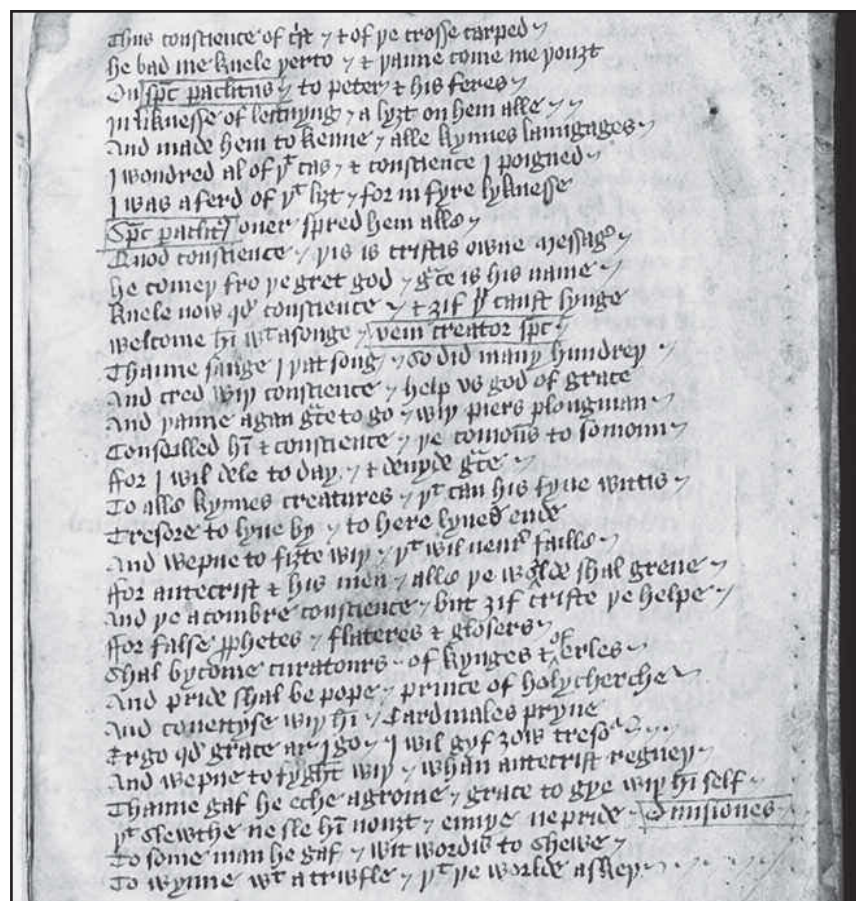 Thus conscience of cͥst / & of þe crosse carped /
he bad me knele þerto / & þanne come me þouȝt
On sp̄c paclitus / to peter & his feres /
in liknesse of leitnyng / a lyȝt on hem alle / /
And made hem to kenne / alle kynnes langages /
I wondred al of þͭ cas / & conscience I poigned /
I was aferd of þͭ liȝt / for in fyre lyknesse
Sp̄c paclitꝰ ouer spred hem alle /
Quod conscience / þis is cristis owne messagͦ /
he comeþ fro þe gret god / gͣce is his name /
knele now qd̵ conscience / & ȝif þͧ canst synge
welcome hī wͭ asonge / veni creator sp̄c /
Thanne sange I þat song / so did many hundreþ /
And cred wiþ conscience / help vs god of grace
And þanne agan gͣce to go / wiþ piers plougman /
Conseilled hī & conscience / þe comoūs to somonn /
ffor I wil dele to day / & deuyde gͣce /
To alle kynnes creatures / þͭ can his fyue wittis /
Tresore to lyue by / to here lyues ende
And wepne to fiȝte wiþ / þͭ wil neuͥ faille /
ffor antecrist & his men / alle þe worlde shal greue /
And þe acombre conscience / but ȝif criste þe helpe /
ffor false ꝓphetes / flateres & glosers /
Shal bycome curatours / of kynges & of erles /
And pride shal be pope / prince of holycherche
And coueityse wiþ hī / Cardinales pryue
Ergo qd̵ grace ar I go / I wil gyf ȝow tresoͬ / / /
And wepne to fyght wiþ / whan antecrist regneþ /
Thanne gaf he eche agrome / grace to gye wiþ hī self /
þͭ slewthe ne sle hī nouȝt / enuye ne pride / Diuisiones /
To some man he gaf / wit wordis to shewe /
To wynne wͭ a triwfle / þͭ þe worlde askeþ / / / / /